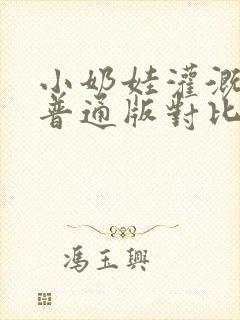 小奶娃灌溉
普通版對比
馮玉興